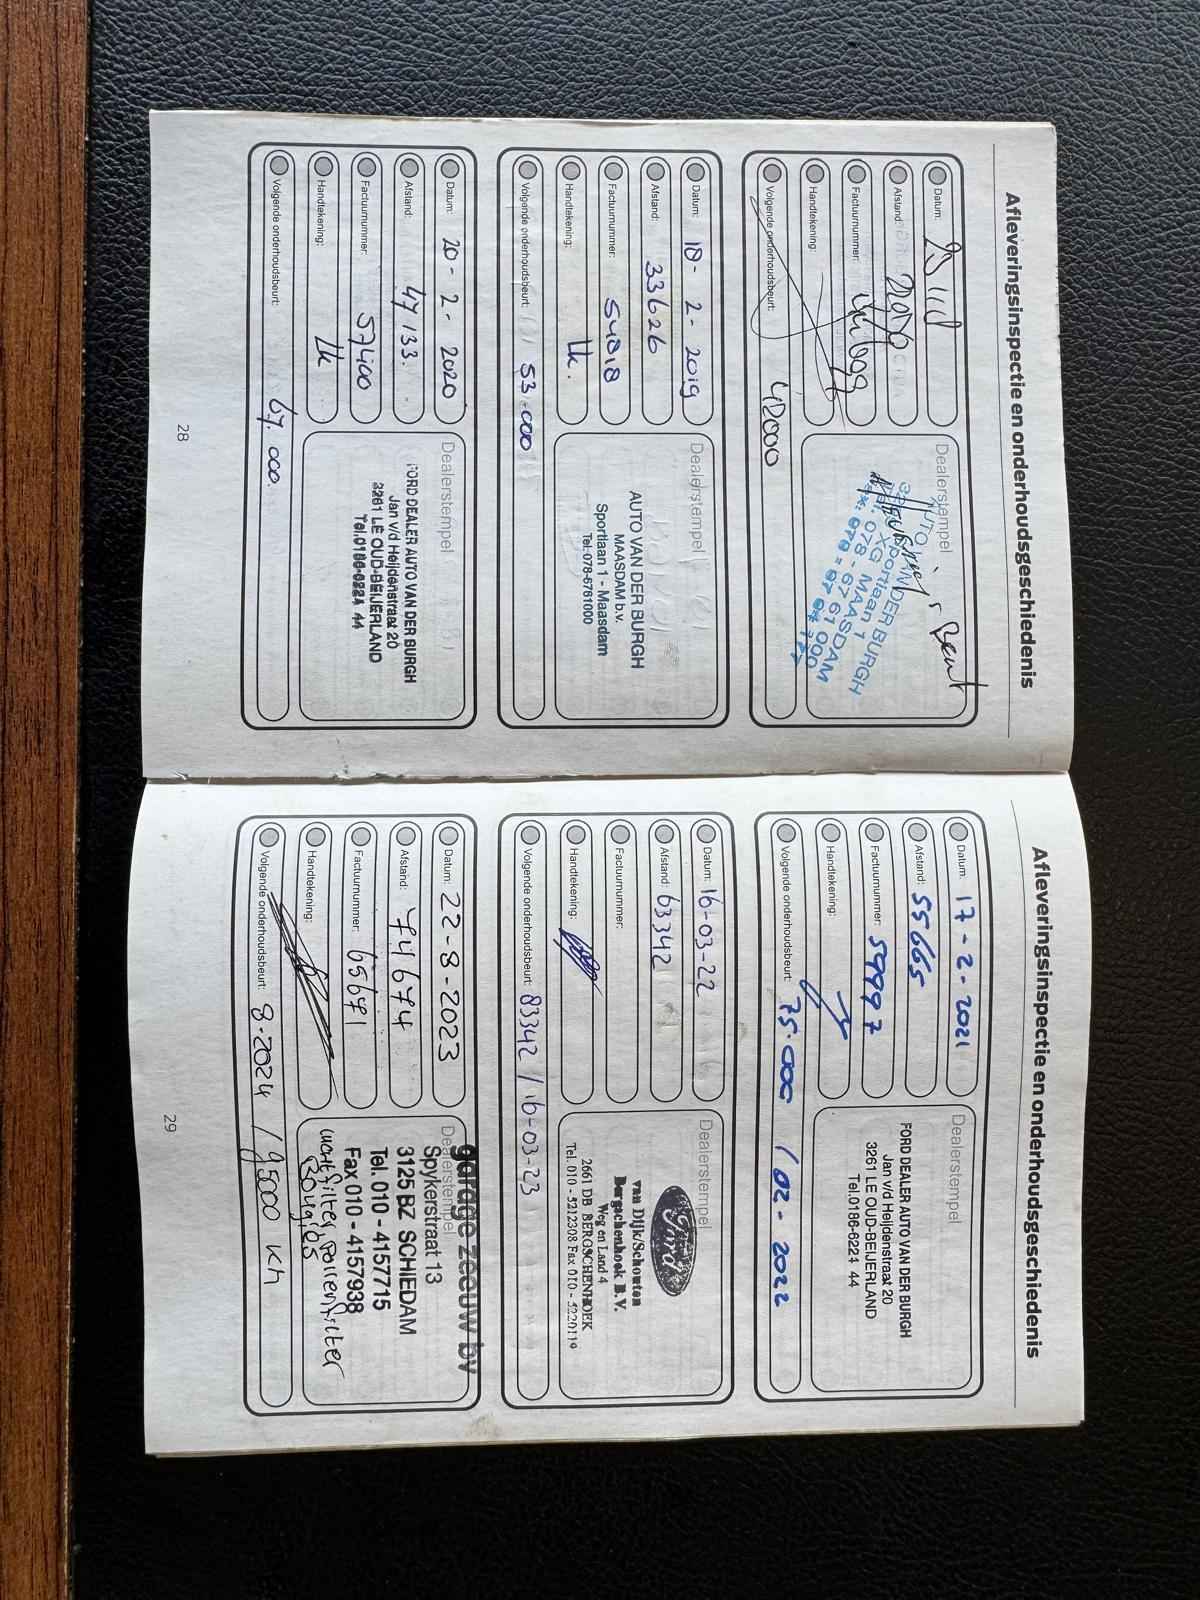 Afleveringsinspectie en onderhoudsgeschiedenis
Datum:
Afstand:
Factuurnummer:
Handtekening:
Volgende onderhoudsbeurt: 42000
Dealerstempel
AUTO VAN DER BURGH
Sportlaan 1
XG MAASDAM
078 - 67 61 000
Beurt
Datum: 18 - 2 - 2019
Afstand: 33626
Factuurnummer: 54818
Handtekening:
Volgende onderhoudsbeurt: 53.000
Dealerstempel
AUTO VAN DER BURGH
MAASDAM b.v.
Sportlaan 1 - Maasdam
Tel. 078-6761000
Datum: 20 - 2 - 2020
Afstand: 47133.
Factuurnummer: 57400
Handtekening:
Volgende onderhoudsbeurt: 67.000
Dealerstempel
FORD DEALER AUTO VAN DER BURGH
Jan v/d Heijdenstraat 20
3261 LE OUD-BEIJERLAND
Tel.0186-6224 44
28
Afleveringsinspectie en onderhoudsgeschiedenis
Datum: 17 - 2 - 2021
Afstand: 55665
Factuurnummer: 59997
Handtekening:
Volgende onderhoudsbeurt: 75.000 / 02 - 2022
Dealerstempel
FORD DEALER AUTO VAN DER BURGH
Jan v/d Heijdenstraat 20
3261 LE OUD-BEIJERLAND
Tel.0186-6224 44
Datum: 16-03-22
Afstand: 63342
Factuurnummer:
Handtekening:
Volgende onderhoudsbeurt: 83342 / 16-03-23
Dealerstempel
Ford
van Dijk/Schouten
Bergschenhoek B.V.
Weg en Land 4
2661 DB BERGSCHENHOEK
Tel. 010 - 5212308 Fax 010 - 5220119
Datum: 22-8-2023
Afstand: 74674
Factuurnummer: 65671
Handtekening:
Volgende onderhoudsbeurt: 8-2024 / 95000 KM
Dealerstempel
garage zeeuw bv
Spykerstraat 13
3125 BZ SCHIEDAM
Tel. 010 - 4157715
Fax 010 - 4157938
luchtfilter pollenfilter
Bougies
29